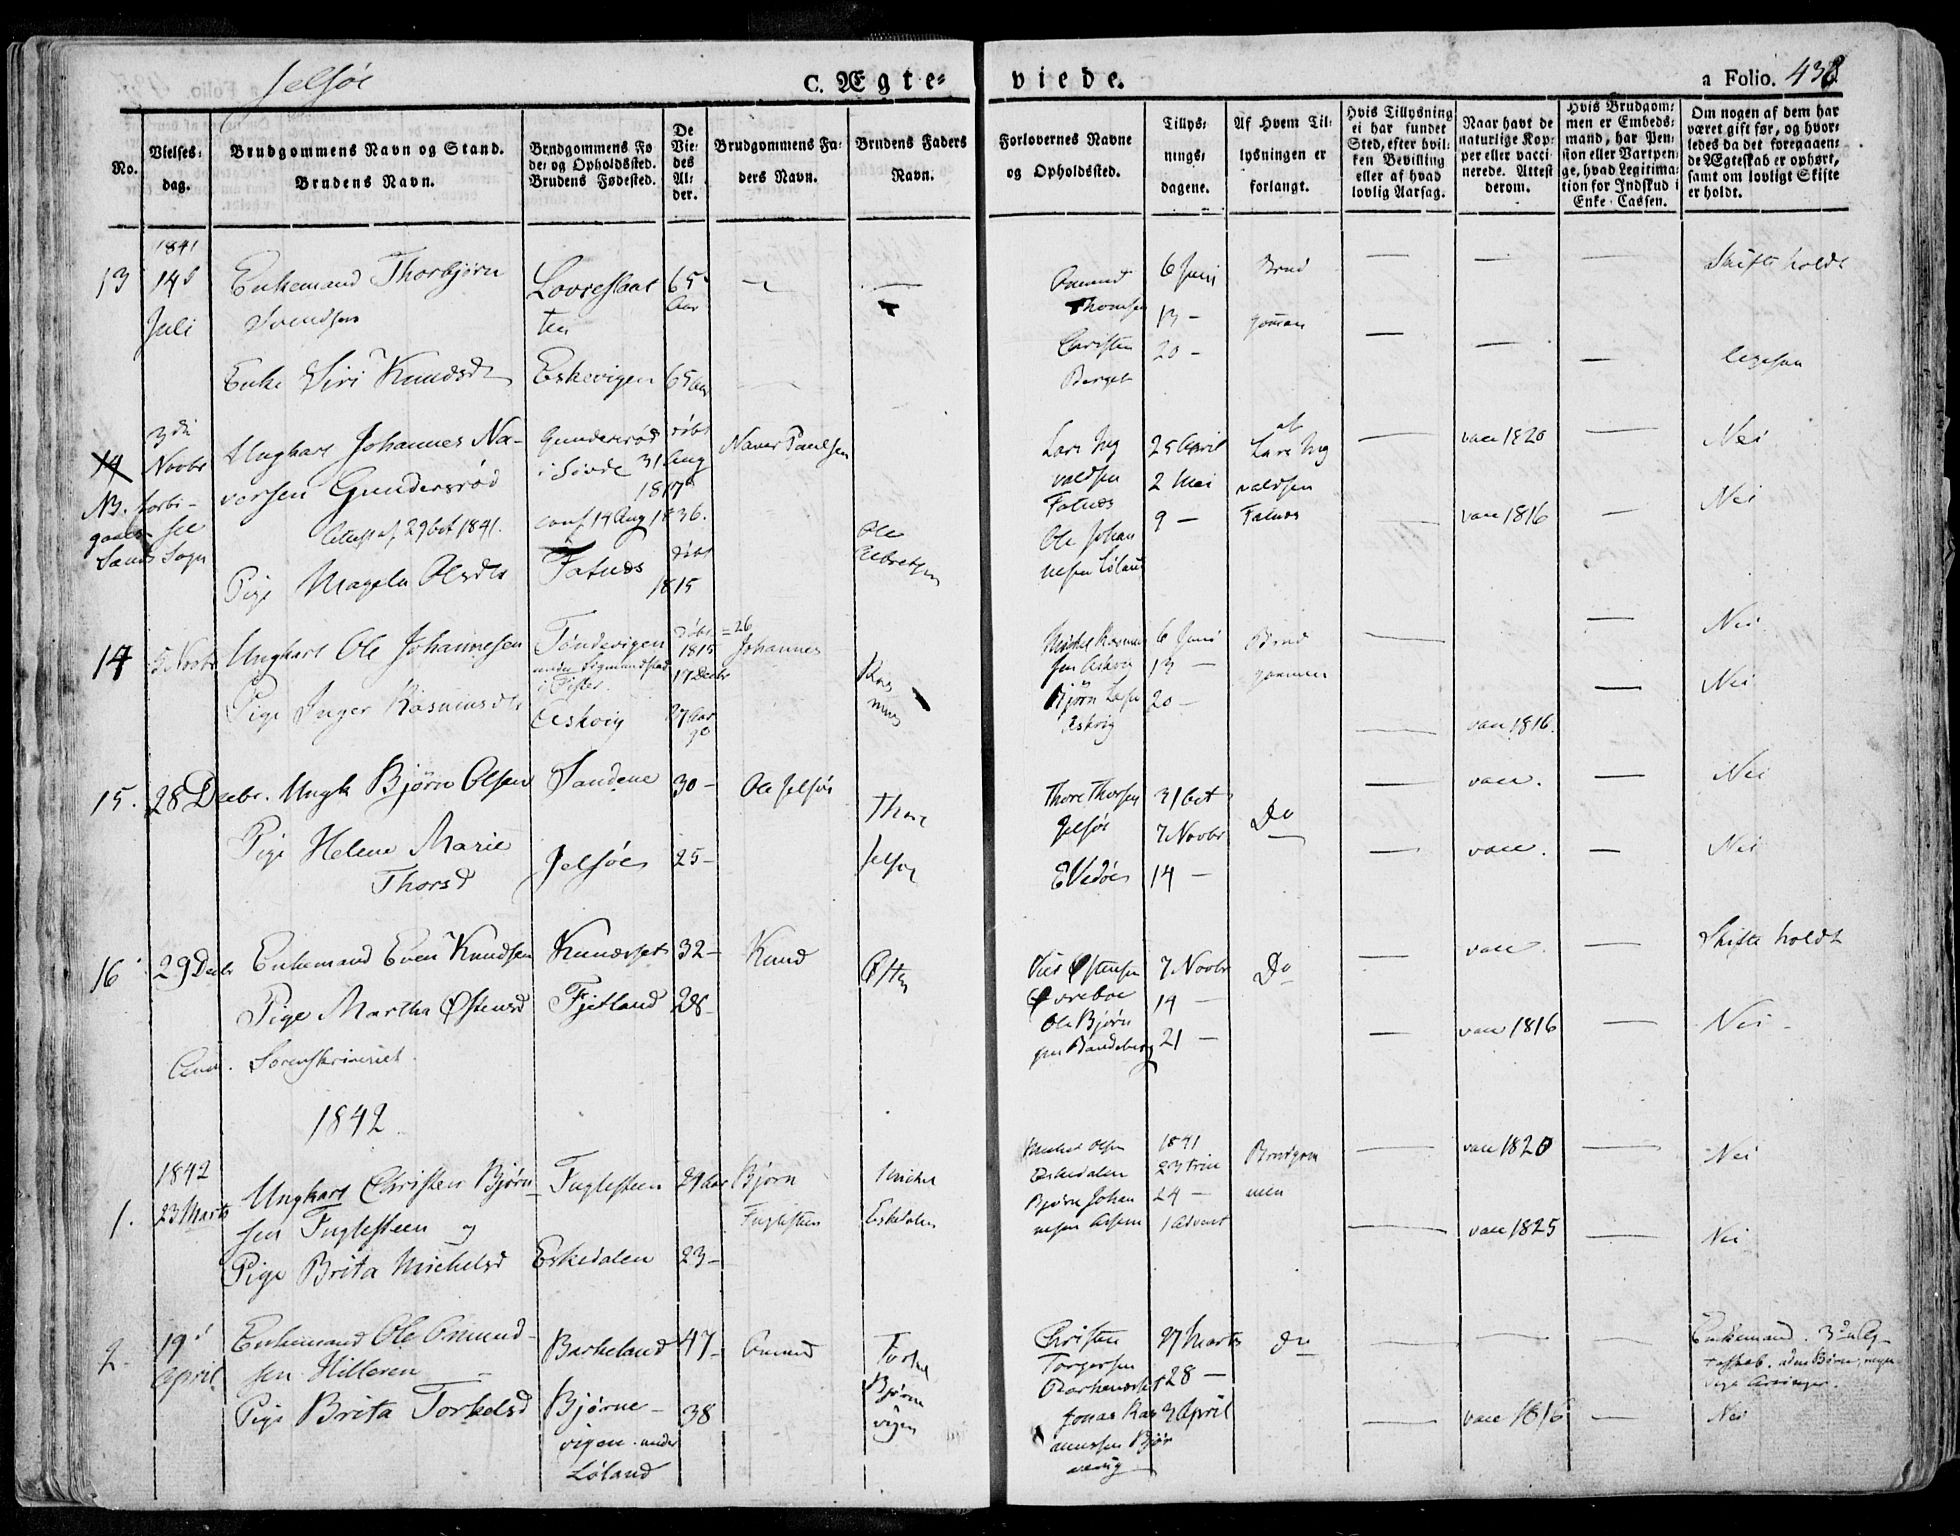 Jelsøe
C. Ægte-
viede.
a Folio. 438
No.
Vielses-
dag.
Brudgommens Navn og Stand.
Brudens Navn.
Brudgommens Fø-
de- og Opholdssted.
Brudens Fødested.
De
Vie-
des
Al-
der.
Brudgommens Fa-
ders Navn.
Brudens Faders
Navn.
Forlovernes Navne
og Opholdssted.
Tillys-
nings-
dagene.
Af Hvem Til-
lysningen er
forlangt.
Hvis Tillysning
ei har fundet
Sted, efter hvil-
ken Bevilling
eller af hvad
lovlig Aarsag.
Naar havt de
naturlige Kop-
per eller vacci-
nerede. Attest
derom.
Hvis Brudgom-
men er Embeds-
mand, har Pen-
sion eller Vartpen-
ge, hvad Legitima-
tion for Indskud i
Enke-Cassen.
Om nogen af dem har
været gift før, og hvor-
ledes da det foregaaen-
de Ægteskab er ophørt,
samt om lovligt Skifte
er holdt.
1841
13
14d
Juli
Enkemand Thorbjørn
Svendsen
Enke Siri Knudsd
Lovreslaat
ten
Eskevigen
65
Aar
65 Aar
Omund
Thomsen
Christen
Berget
6 Juni
13 -
20 -
Brud
gommen
Skifte holdt
ligesaa
14
3die
Novbr
NB. forbi-
gaaes
Sands Sogn
Ungkarl Johannes Na-
versen Gundersrød
Attest af 29 Oct 1841.
Pige Magela Olsdtr
Gundersrød
i Søvde
conf 14 Aug 1836.
Fatnes
døbt
31 Aug
1817
døbt
1815
Naver Paulsen
Ole
Lars Ing
valdsen
Fatnes
Ole Johan
nesen Løland
25 April
2 Mai
9 -
af
Lars Ing
valdsen
Fatnes
vacc 1820
vacc 1816
Nei
Nei
14
5 Novbr
Ungkarl Ole Johannesen
Pige Inger Rasmusdtr
Tøndevigen
under Sigmundstad
i Fister
Askvig
døbt
1815
17 Decbr
27 Aar
= 26
Johannes
Ras
mus
Michel Rasmus
sen Askvig
Bjørn Lars
Eskvig
6 Juni
13 -
20 -
Brud
gommen
vacc 1816.
Nei
Nei
15.
28 Decbr.
Ungk Bjørn Olsen
Pige Helene Marie
Thorsd
Sandene
Jelsøe
30 -
25 -
Ole Jelsøe
Thore
Jelsøe
Thore Thorsen
Jelsøe
E Vedøe
31 Oct
7 Novbr
14 -
Do
vacc.
vacc.
Nei
Nei
16
29 Decbr
Enkemand Even Knudsen
Pige Martha Østensd
Sorenskriveriet
Knudsset
Fjetland
32 -
28 -
Knud
Østen
Østensen
Øvreboe
Ole Bjørn
sen Bandeberg
7 Novbr
14 -
21 -
Do
vacc.
vacc 1816
Skifte holdt
Nei
1842
1842
1.
23 Marts
Ungkarl Christen Bjørn-
sen Fuglesteen og
Pige Brita Michelsd
Fuglesteen
Eskedalen
29 Aar
23 -
Bjørn
Fuglesteen
Michel
Eskedalen
Michel Olsen
Eskedalen
Bjørn Johan
nesen
1841
23 Trin
24 -
1 Advent
Brudgom
men
vacc 1820
vacc 1825
Nei
Nei
2.
19d
April
Enkemand Ole Omund-
sen Hilleren
Pige Brita Torkelsd
Barkeland
Bjørne-
vigen under
Løland
47 -
38
Omund
Torkel
Bjørne
vigen
Christen
Torgersen
Jonas Ras
mussen Bjør
nevig
27 Marts
28 -
3 April
do
vacc 1816
Enkemand. 3die Æg-
teskab. uden Børn, ingen
Nei